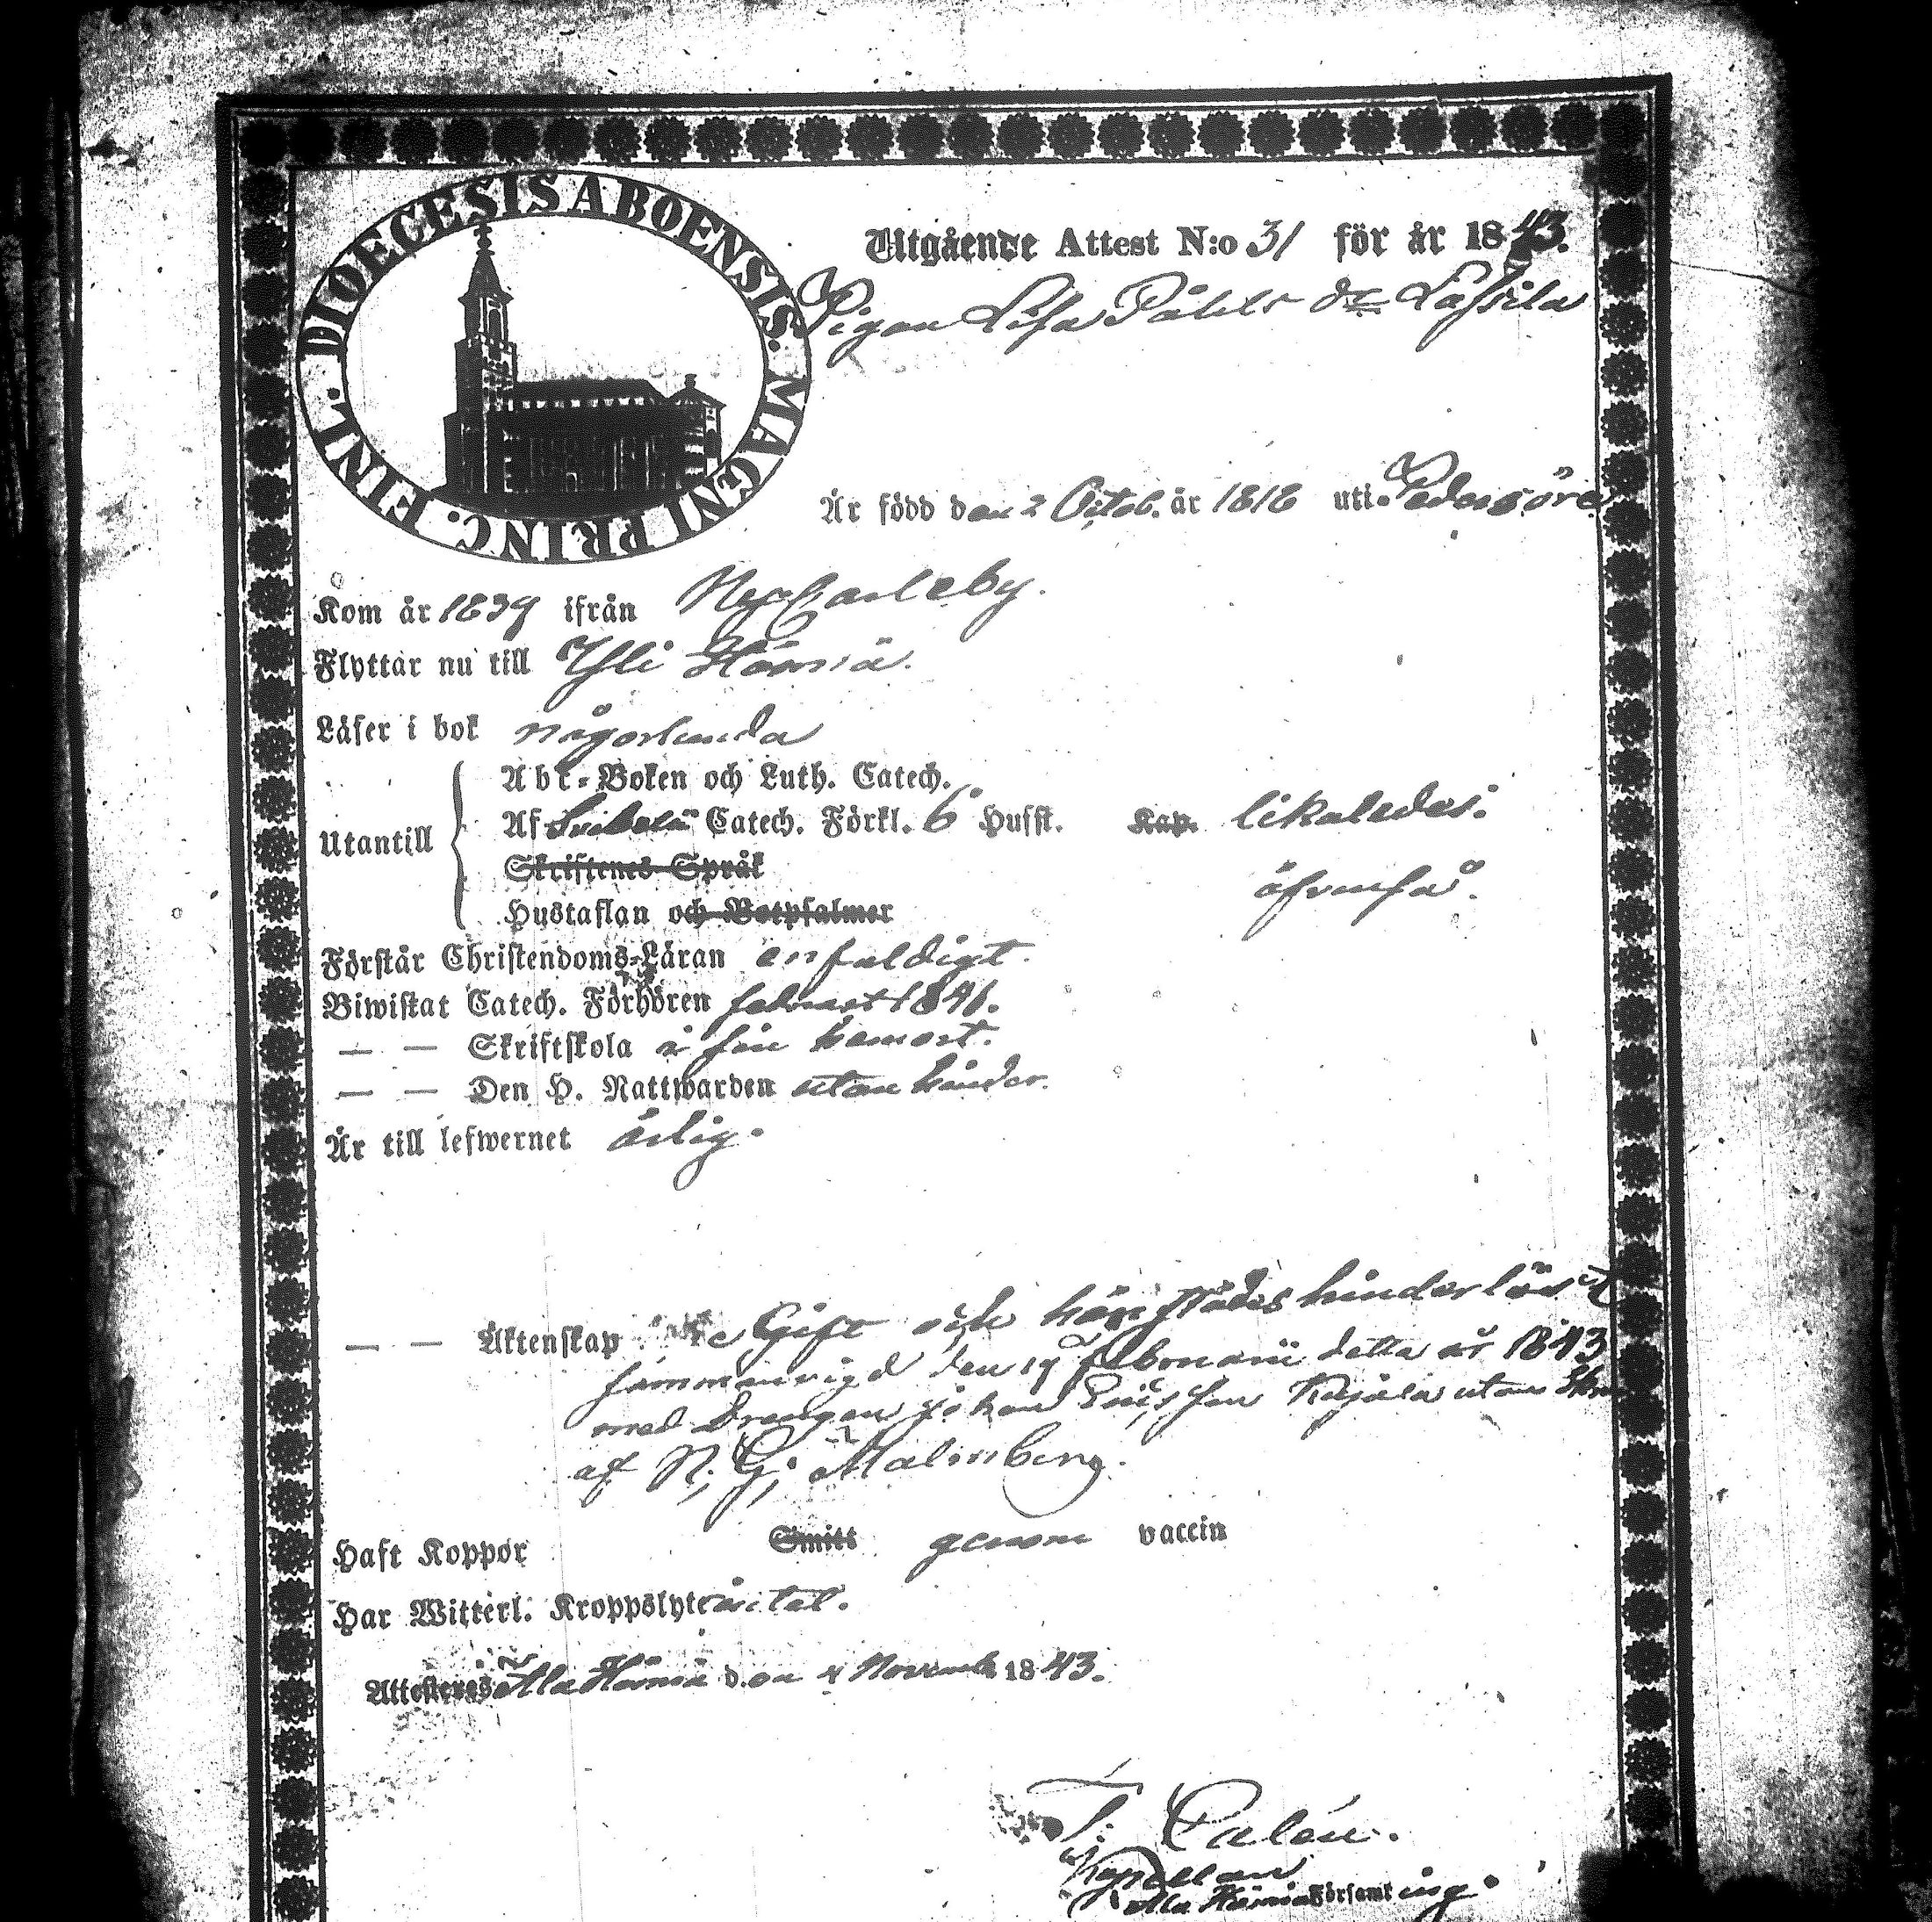 DIOECESIS ABOENSIS. MAGNI PRINC. FINL.
Utgående Attest N:o 31 för år 1843.
Pigan Lisa Påhls dr Lassila
Är född den 2 Octob. år 1818 uti Pedersöre
Kom år 1839 ifrån NyCarleby.
Flyttar nu till Ylihärmä.
Läser i bok någorlunda
Utantill
Abc-Boken och Luth. Catech.
Af Svebelii Catech. Förkl. 6 Hufst. Kap. likaledes.
Skriftenes Språk
Hustaflan och Botpsalmer äfvenså.
Förstår Christendoms-Läran enfaldigt.
Biwistat Catech. Förhören 1841.
— — Skriftskola i sin hemort.
— — Den H. Nattwarden utan hinder.
Är till lefwernet ärlig.
— — Äktenskap Gift och härstädes
sammanvigd den 19 Februarii detta år 1843
med Drengen Johan Ericsson utan
af N. G. Malmberg.
Haft Koppor Smitt genom vaccin
Har Witterl. Kroppslyte
Attesteras Ala Härmä den 4 Novemb 1843.
T. Calén.
Kapellan
Ala Härmä Församling.